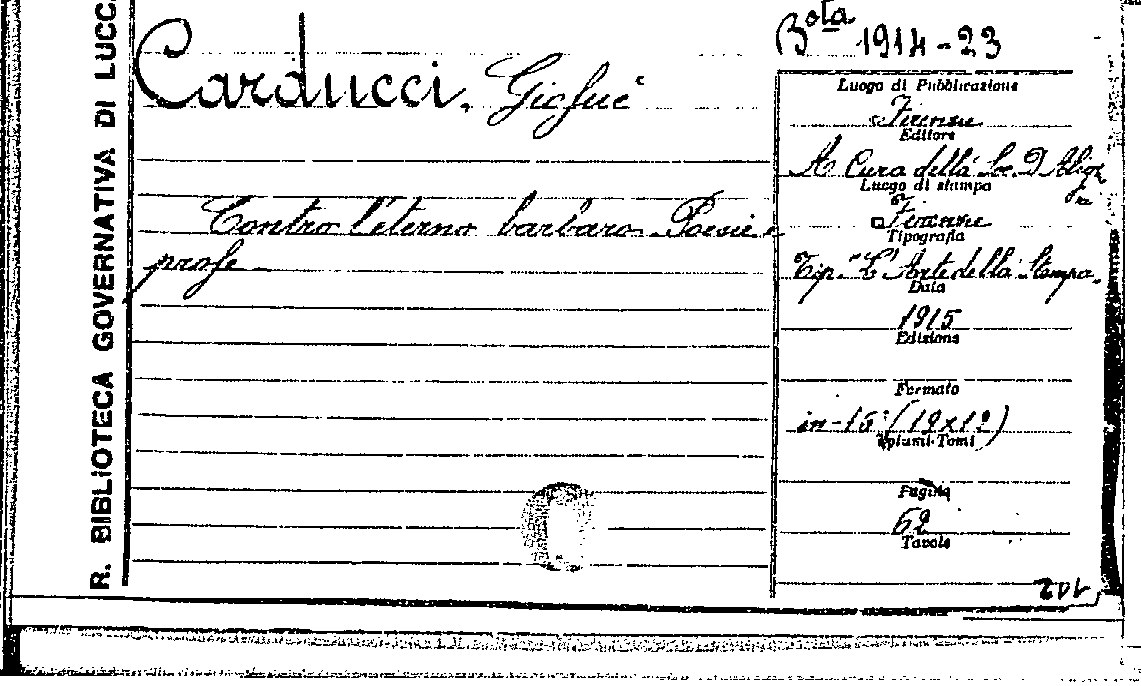 R. BIBLIOTECA GOVERNATIVA DI LUCCA
Carducci, Giosuè
Contro l'eterno barbaro. Poesie e
prose
B.ota 1914-23
Luogo di Pubblicazione
Firenze
Editore
A Cura della Soc. D. Aligh
Luogo di stampa
Firenze
Tipografia
Tip. "L'Arte della Stampa.
Data
1915
Edizione
Formato
in-15° (19x12)
Volumi-Tomi
Pagine
52
Tavole